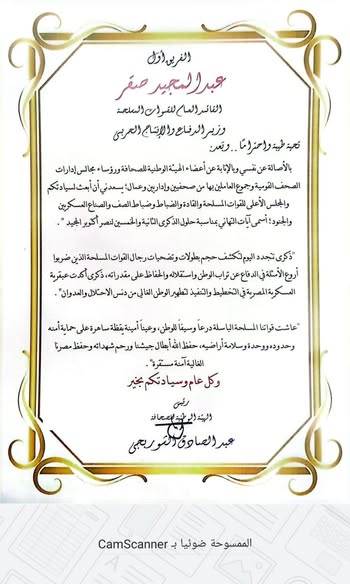 الفريق أول
عبد المجيد صقر
القائد العام للقوات المسلحة
وزير الدفاع والإنتاج الحربي
تحية طيبة واحترامًا.. وبعد:
بالأصالة عن نفسي وبالإنابة عن أعضاء الهيئة الوطنية للصحافة ورؤساء مجالس إدارات
الصحف القومية وجموع العاملين بها من صحفيين وإداريين وعمال؛ يسعدني أن أبعث لسيادتكم
والمجلس الأعلى للقوات المسلحة والقادة والضباط وضباط الصف والصناع العسكريين
والجنود؛ أسمى آيات التهاني بمناسبة حلول الذكرى الثانية والخمسين لنصر أكتوبر المجيد "
"ذكرى تتجدد اليوم لتكشف حجم بطولات وتضحيات رجال القوات المسلحة الذين ضربوا
أروع الأمثلة في الدفاع عن تراب الوطن واستقلاله والحفاظ على مقدراته، ذكرى أكدت عبقرية
العسكرية المصرية في التخطيط والتنفيذ لتطهير الوطن الغالي من دنس الاحتلال والعدوان".
"عاشت قواتنا المسلحة الباسلة درعاً وسيفاً للوطن، وعيناً أمينة يقظة ساهرة على حماية أمنه
وحدوده ووحدة وسلامة أراضيه، حفظ الله أبطال جيشنا ورحم شهدائه وحفظ مصرنا
الغالية آمنة مستقرة".
وكل عام وسيادتكم بخير
رئيس
الهيئة الوطنية للصحافة
عبد الصادق الشوربجي
الممسوحة ضوئيا بـ CamScanner